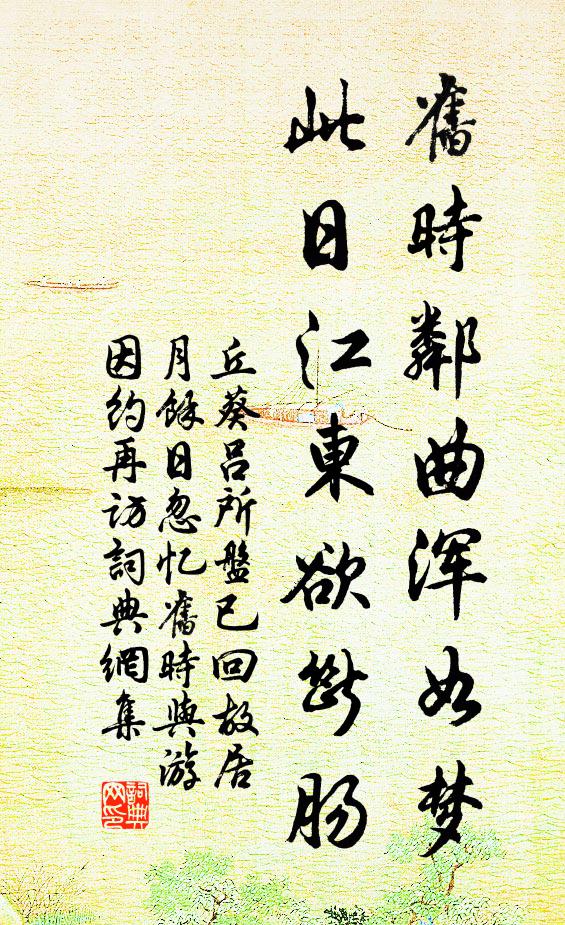 舊時鄰曲浑如梦
此日江東欲斷肠
丘葵吕所盤已回故居
月餘日忽忆舊時與游
因约再访詞典網集
詞典网印